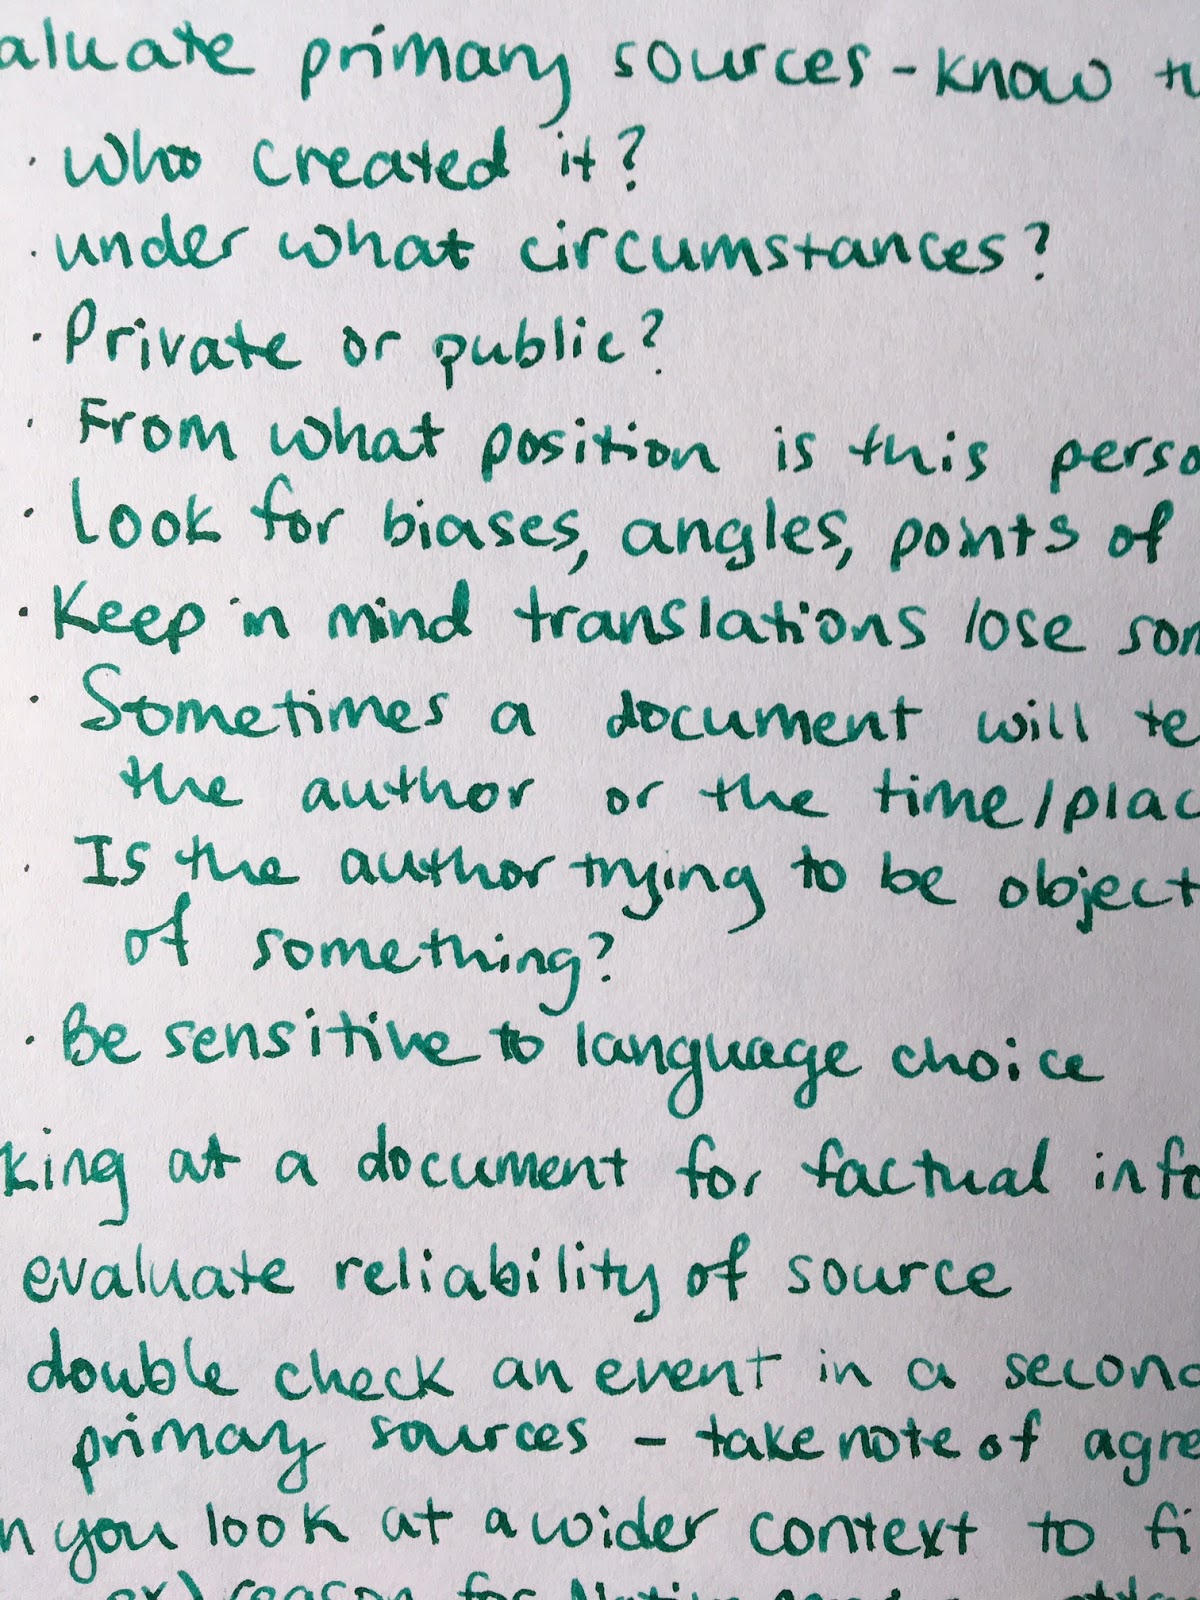 aluate primary sources - know th
· Who created it?
· under what circumstances?
· Private or public?
· From what position is this perso
· Look for biases, angles, points of
· Keep in mind translations lose som
· Sometimes a document will te
the author or the time/plac
· Is the author trying to be object
of something?
· Be sensitive to language choice
king at a document for factual info
evaluate reliability of source
double check an event in a second
primary sources - take note of agre
n you look at a wider context to fi
ex) reason for Native